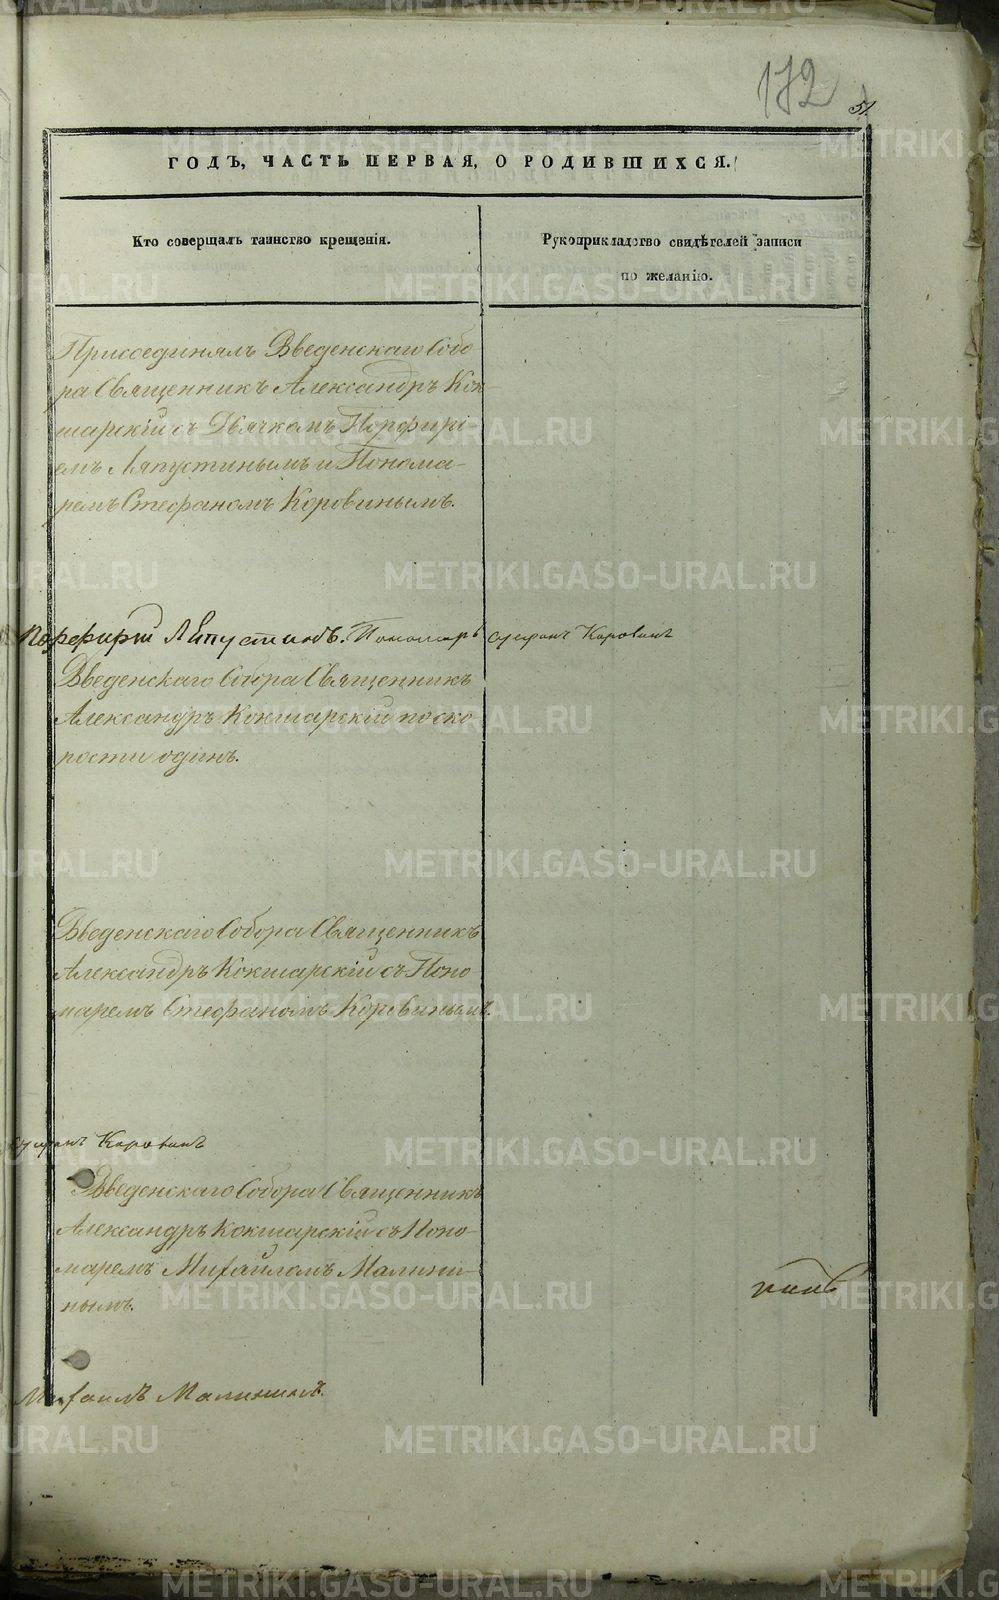 172
51.
ГОДЪ, ЧАСТЬ ПЕРВАЯ, О РОДИВШИХСЯ.
Кто совершалъ таинство крещенія.
Рукоприкладство свидѣтелей записи
по желанію.
Присоединялъ Введенскаго Собо
ра Священникъ Александръ Кок-
шарскій съ Дьячкомъ Порфирі-
емъ Ляпустинымъ и Понома-
ремъ Стефаномъ Коровинымъ.
Порфирій Ляпустинъ. Пономарь Стефанъ Коровинъ
Введенскаго Собора Священникъ
Александръ Кокшарскій по ско
рости одинъ.
Введенскаго Собора Священникъ
Александръ Кокшарскій съ Поно
маремъ Стефаномъ Коровинымъ.
Стефанъ Коровинъ
Введенскаго Собора Священникъ
Александръ Кокшарскій съ Поно-
маремъ Михаиломъ Малини-
нымъ.
Михаилъ Малининъ.
METRIKI.GASO-URAL.RU